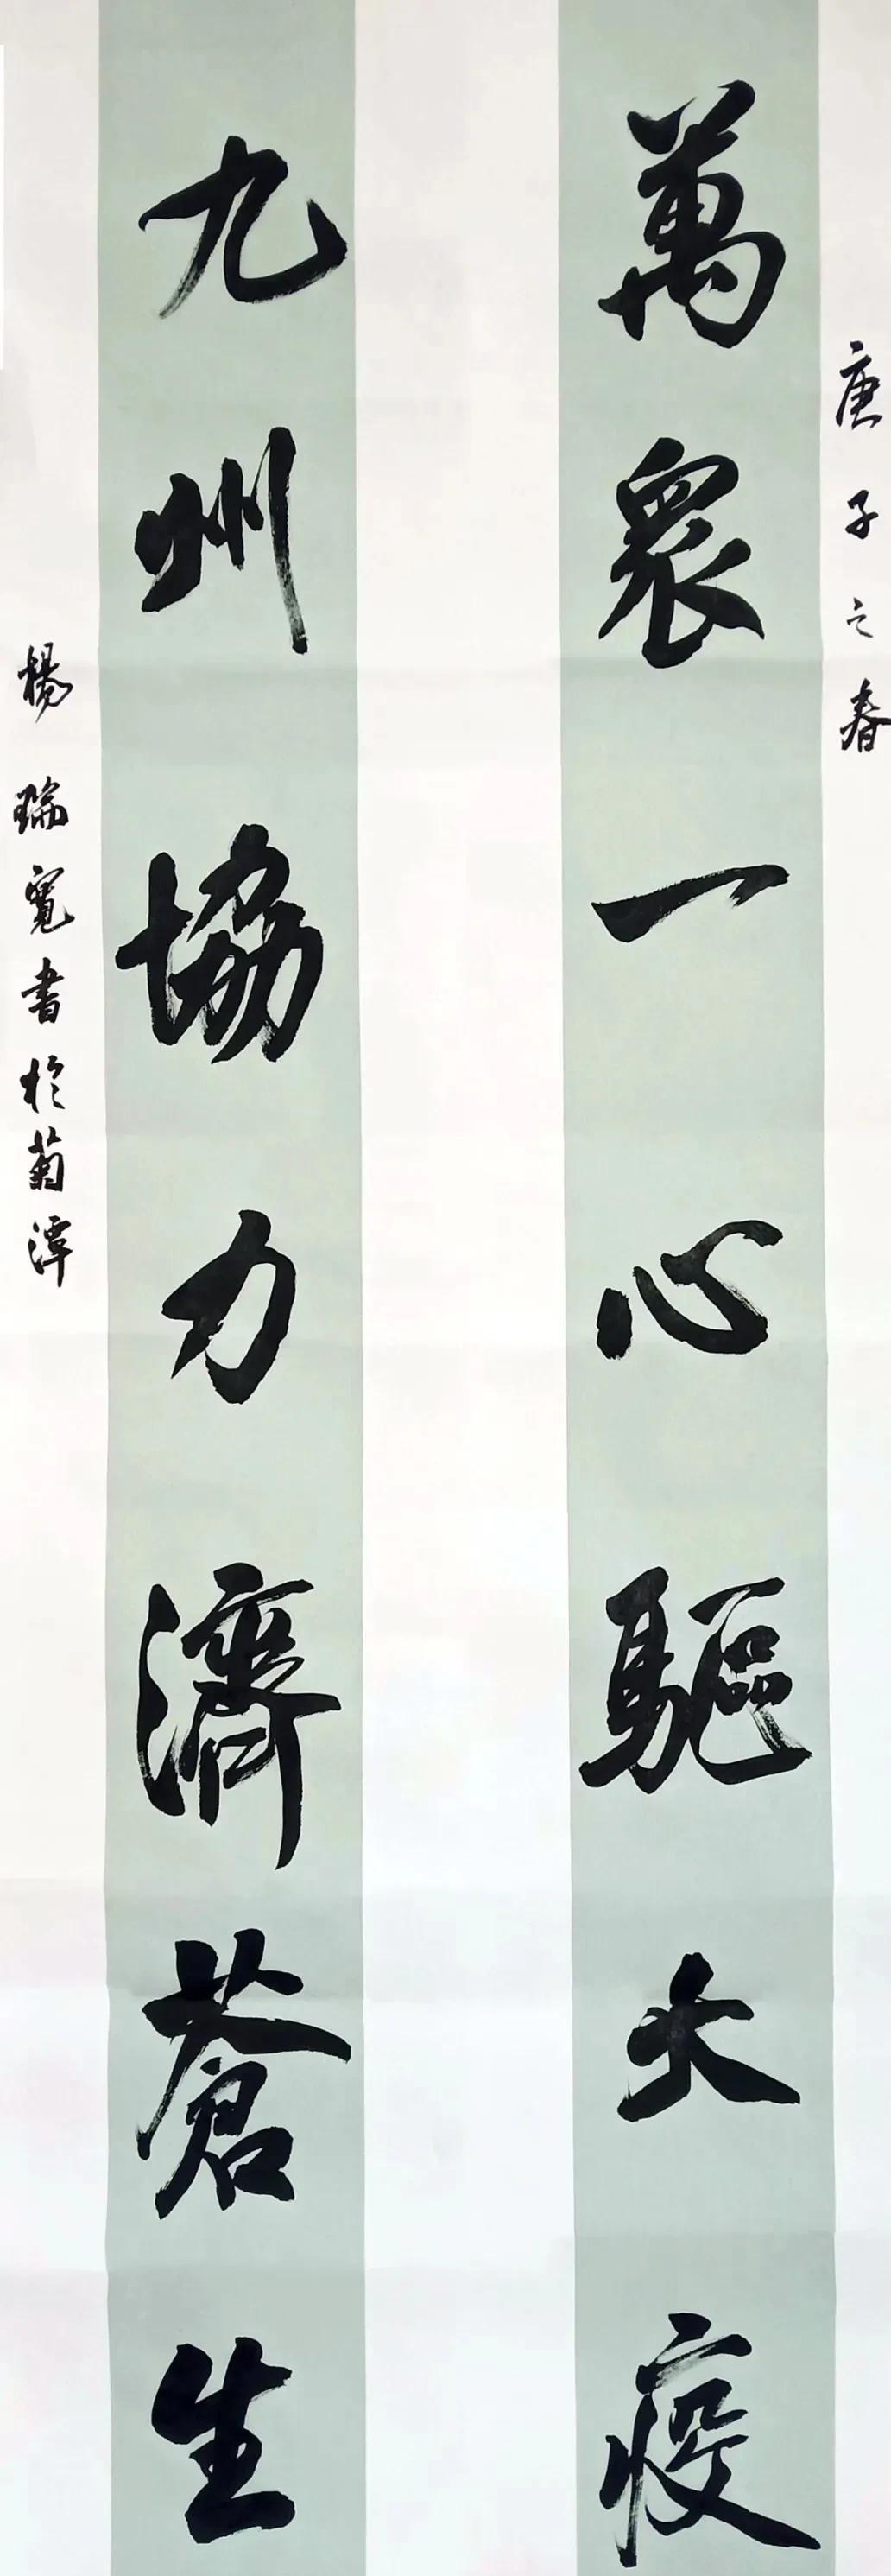 庚子之春
萬眾一心驅大疫
九州協力濟蒼生
楊瑞寬書於菊潭